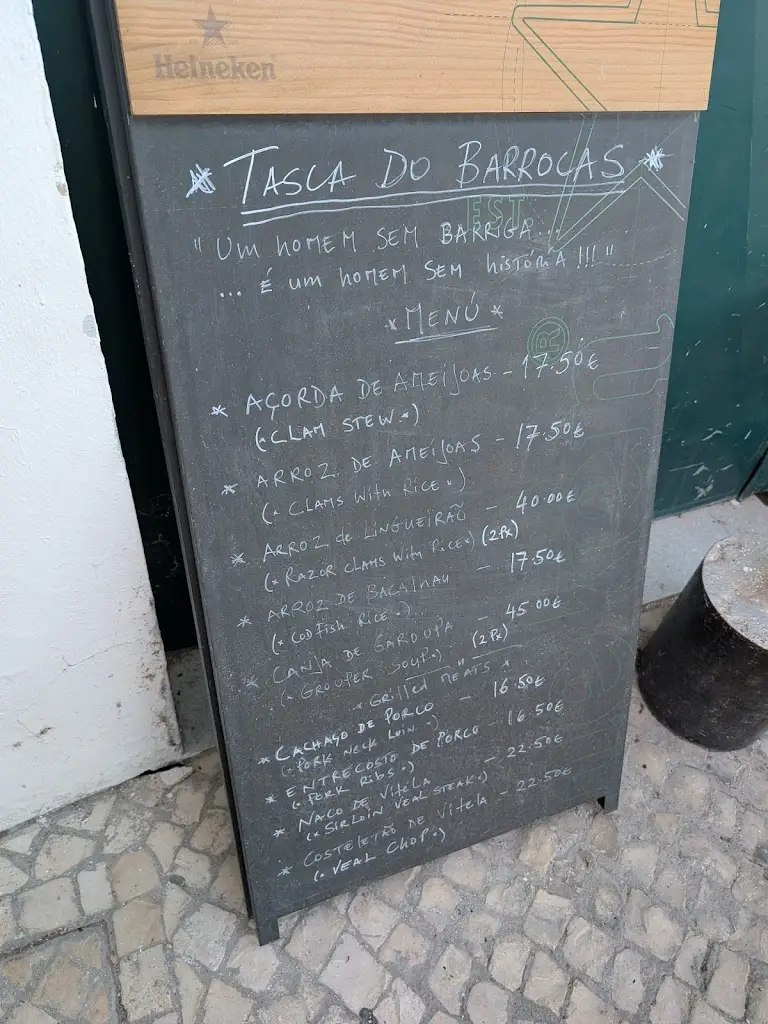 Heineken
* TASCA DO BARROCAS *
EST
" UM HOMEM SEM BARRIGA...
... É UM HOMEM SEM HISTÓRIA !!! "
* MENÚ *
* AÇORDA DE AMEIJOAS - 17.50€
(* CLAM STEW *)
* ARROZ DE AMEIJOAS - 17.50€
(* CLAMS WITH RICE *)
* ARROZ de LINGUEIRÃO - 40.00€
(* RAZOR CLAMS WITH RICE *) (2Px)
* ARROZ DE BACALHAU - 17.50€
(* CODFISH RICE *)
* CANJA DE GAROUPA - 45.00€
(* GROUPER SOUP *) (2Px)
* GRILLED MEATS *
* CACHAÇO DE PORCO - 16.50€
(* PORK NECK LOIN *)
* ENTRECOSTO DE PORCO - 16.50€
(* PORK RIBS *)
* NACO DE VITELA - 22.50€
(* SIRLOIN VEAL STEAK *)
* COSTELETÃO DE VITELA - 22.50€
(* VEAL CHOP *)